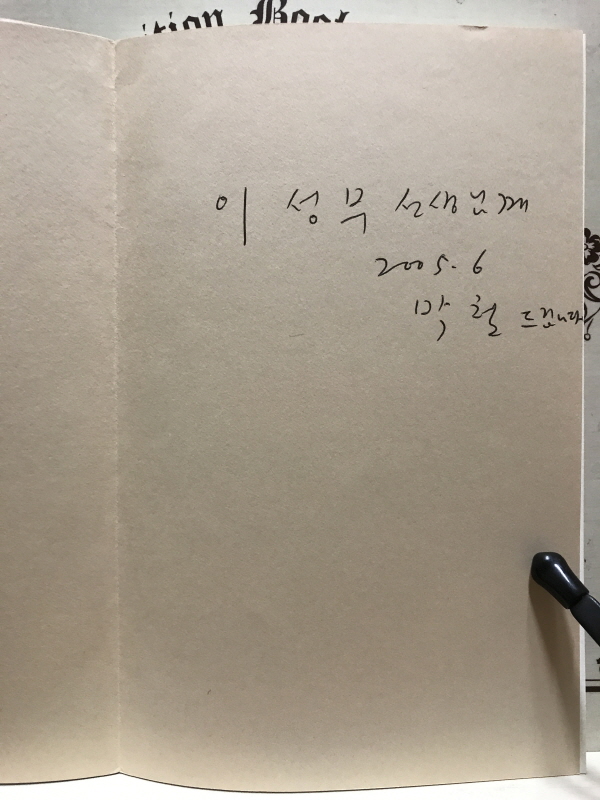 ition Book
이 성부 선생님께
2005. 6
박 철 드립니다